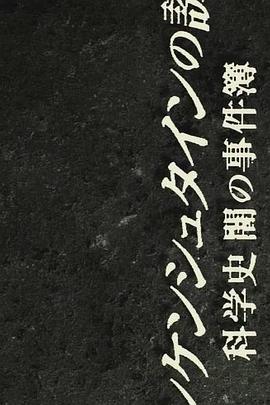 ンケンシュタインの誘
科学史 闇の事件簿